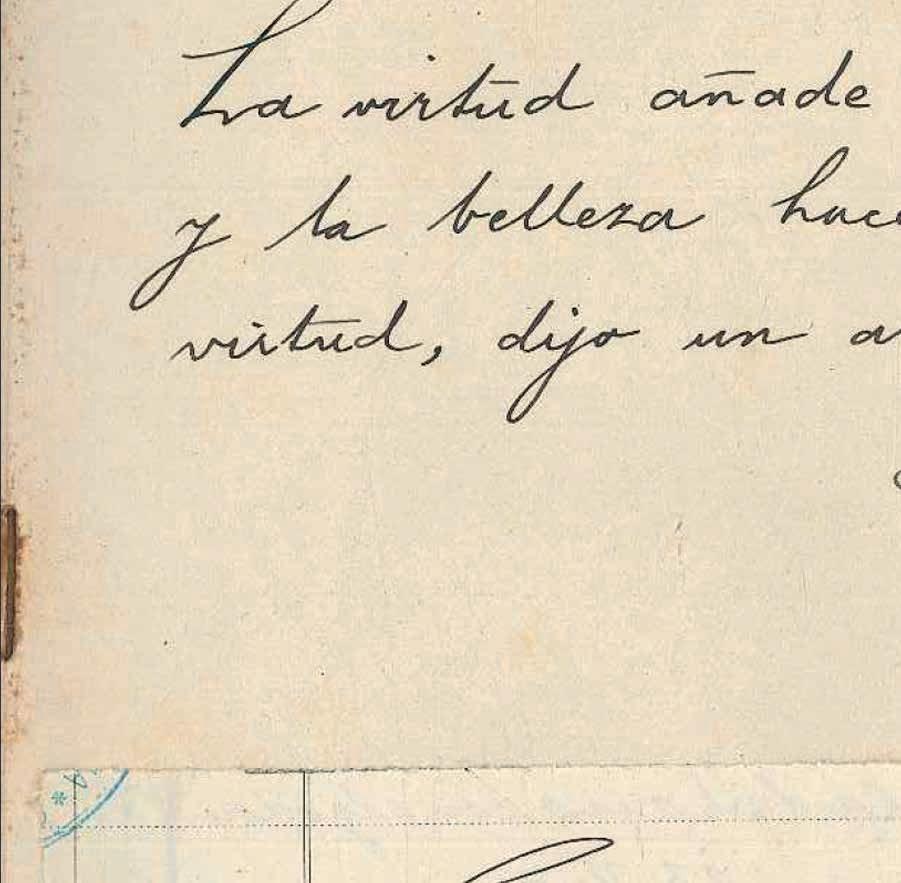 La virtud añade
y la belleza
virtud, dijo un